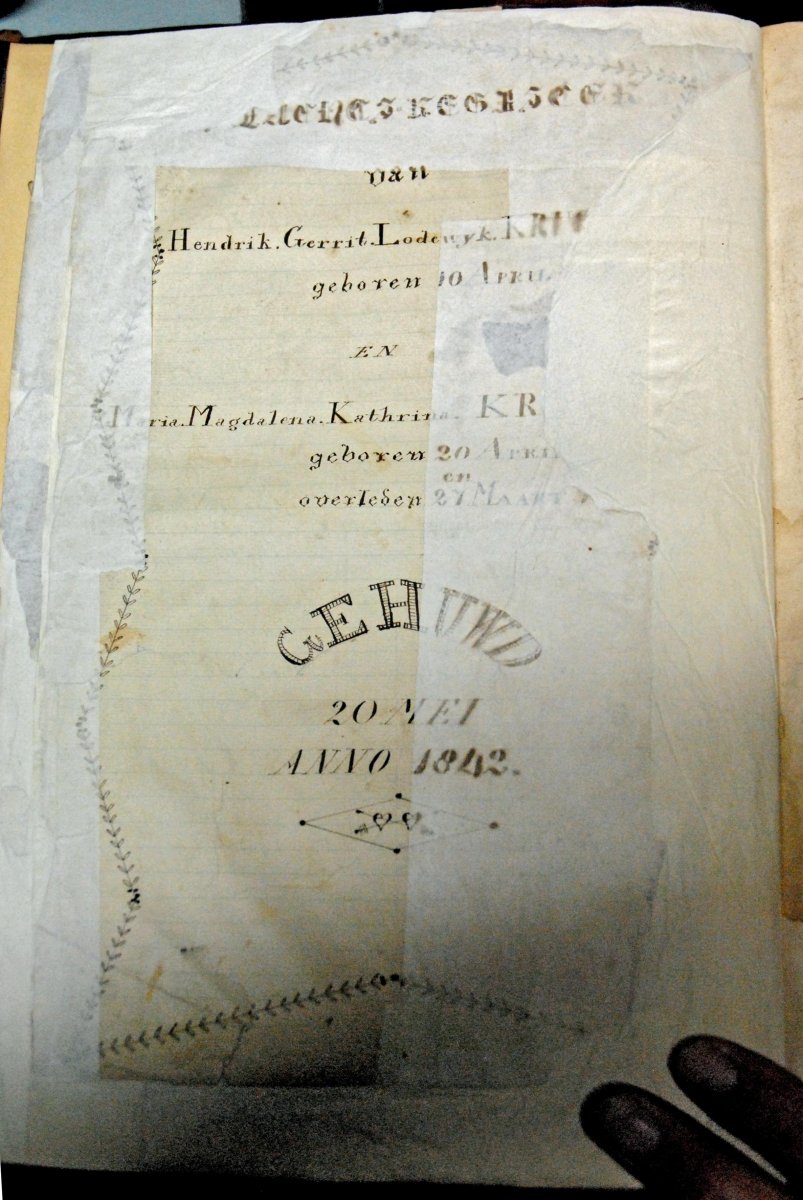 van
Hendrik. Gerrit. Lodewyk. KRI
geboren 10 APRIL
EN
Maria. Magdalena. Kathrina. KR
geboren 20 APRIL
en
overleden 27 MAART
GEHUWD
20 MEI
ANNO 1842.